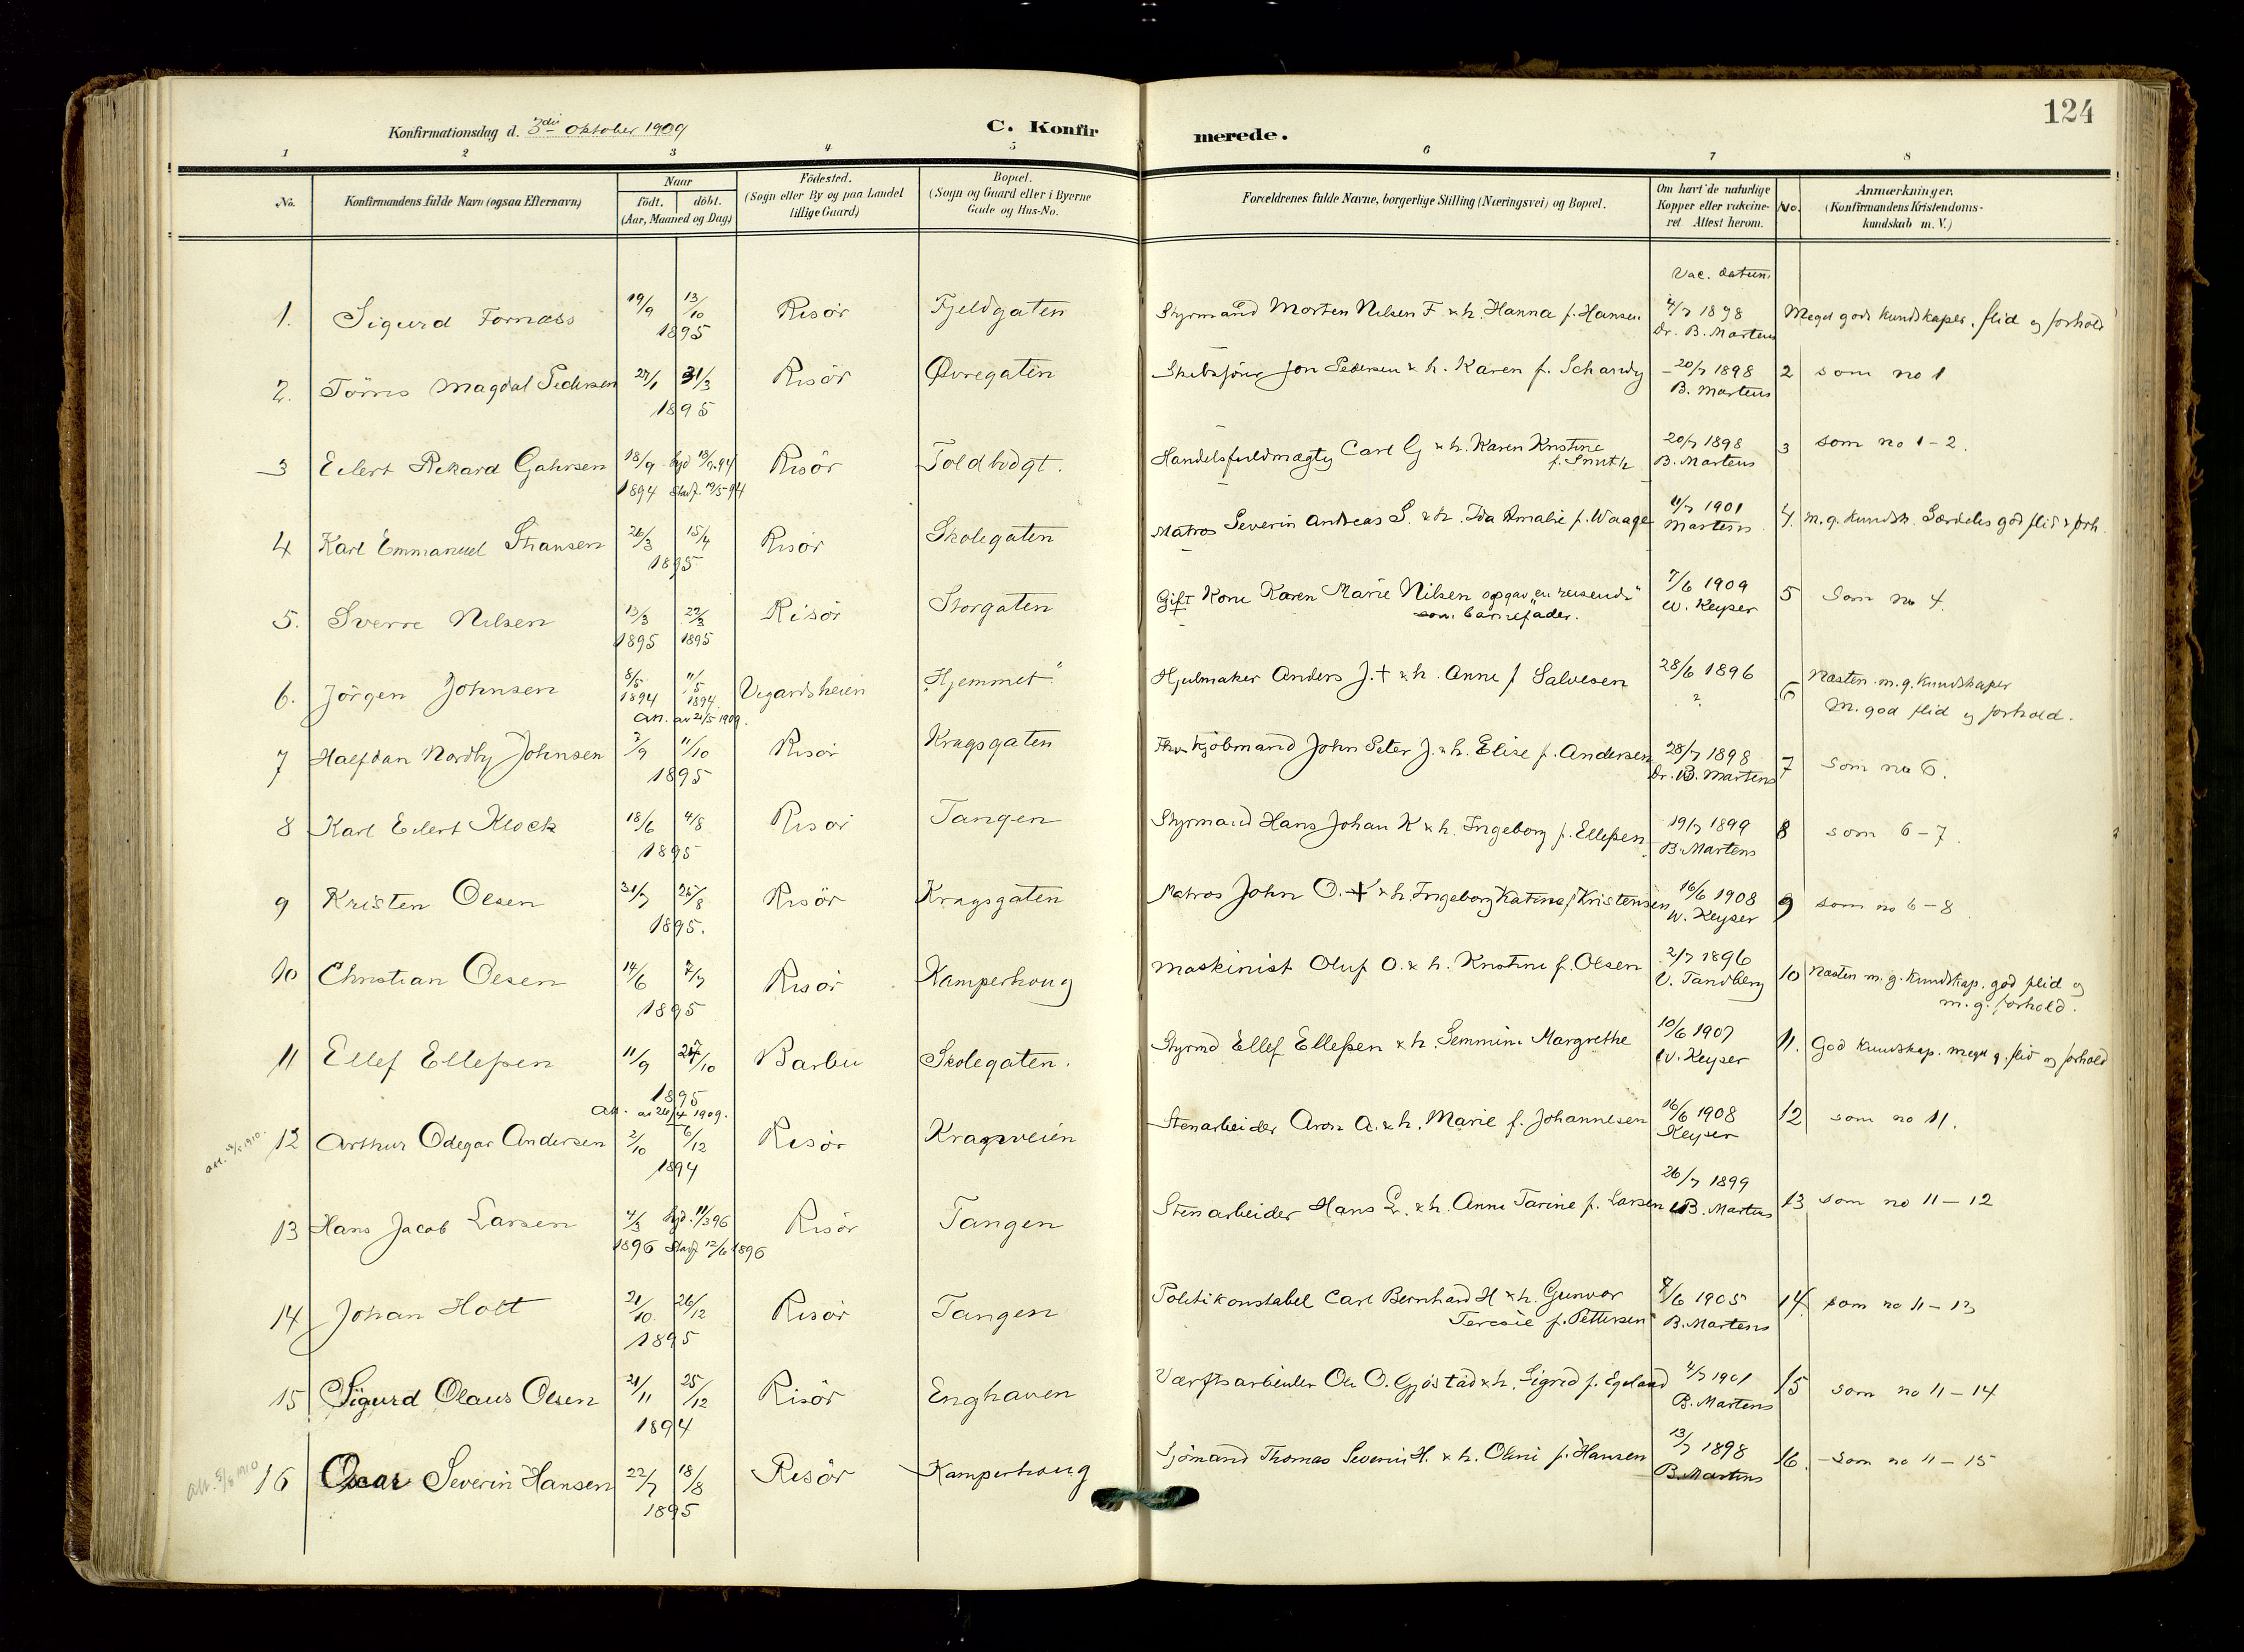 124
Konfirmationsdag d. 3die Oktober 1909
C. Konfirmerede.
1 2 3 4 5 6 7 8
No.
Konfirmandens fulde Navn (ogsaa Efternavn)
Naar
födt. döbt.
(Aar, Maaned og Dag)
Födested.
(Sogn eller By og paa Landet
tillige Gaard)
Bopæl.
(Sogn og Gaard eller i Byerne
Gade og Hus-No.
Forældrenes fulde Navne, borgerlige Stilling (Næringsvei) og Bopæl.
Om havt de naturlige
Kopper eller vakcine-
ret Attest herom.
No.
Anmærkninger.
(Konfirmandens Kristendoms-
kundskab m. V.)
Vac. datum
1. Sigurd Fornæss 19/9 13/10 Risör Fjeldgaten Styrmand Morten Nilsen F. & h. Hanna f. Hansen 4/7 1898 Meget gode kundskaper, flid og forhold
1895 Dr. B. Martens
2. Törres Magdal Pedersen 27/1 31/3 Risör Øvregaten Skibsförer Jon Pedersen & h. Karen f. Schandy 20/7 1898 2 som no 1
1895 B. Martens
3 Eilert Rikard Gahrsen 18/9 Risör Toldbodgt. Handelsfuldmægtig Carl G & h. Karen Kristine 20/7 1898 3 som no 1-2.
1894 Stadf. 19/5-94 f. Smith B. Martens
4 Karl Emmanuel Sthansen 26/3 15/4 Risör Skolegaten Matros Severin Andreas S. & h. Ida Amalie f. Waage 11/7 1901 4. m.g. kundsk. Særdeles god flid & forh.
1895 Martens
5. Sverre Nilsen 13/3 22/3 Risör Storgaten Gift Kone Karen Marie Nilsen opgav "en reisende" 7/6 1909 5 Som no 4.
1895 1895 som barnefader. W. Keyser
6. Jörgen Johnsen 8/5 11/5 Vegardsheien "Hjemmet" Hjulmaker Anders J. † & h. Anne f. Salvesen 28/6 1896 6 Næsten m.g. kundskaper
1894 1894 ? M. god flid og forhold.
Att. av 21/5 1909.
7 Halfdan Nordby Johnsen 2/9 11/10 Risör Kragsgaten Kjöbmand John Peter J. & h. Elise f. Andersen 28/7 1898 7 som no 6.
1895 Dr. B. Martens
8 Karl Eilert Klock 18/6 4/8 Risör Tangen Styrmand Hans Johan K & h. Ingeborg f. Ellefsen 19/7 1899 8 som 6-7.
1895 B. Martens
9 Kristen Olsen 31/7 25/8 Risör Kragsgaten Matros John O. † & h. Ingeborg Katrine f. Kristensen 16/6 1908 9 som no 6-8
1895. W. Keyser
10 Christian Olsen 14/6 7/7 Risör Kamperhoug Maskinist Oluf O. & h. Kristine f. Olsen 2/7 1896 10 Næsten m.g. kundskap. god flid og
1895 V. Tandberg m.g. forhold.
11 Ellef Ellefsen 11/9 27/10 Barbu Skolegaten. Styrmd Ellef Ellefsen & h. Semmine Margrethe 10/6 1907 11. God kundskap. meget g. flid og forhold
1895 W. Keyser
Att. av 26/4 1909.
12 Arthur Odegar Andersen 2/10 6/12 Risör Kragsveien Stenarbeider Aron A. & h. Marie f. Johannesen 16/6 1908 12 som no 11.
1894 Keyser
13 Hans Jacob Larsen 4/3 Hjd. 11/3 96 Risör Tangen Stenarbeider Hans L. & h. Anne Tarine f. Larsen 26/7 1899 13 som no 11-12
1896 Stadf 12/6 1896 B. Martens
14 Johan Holt 21/10 26/12 Risör Tangen Politikonstabel Carl Bernhard H & h. Gunvor 8/6 1905 14. som no 11-13
1895 Teresie f. Pettersen B. Martens
15 Sigurd Olaus Olsen 21/11 25/12 Risör Enghaven Værftsarbeider Ole O. Gjöstad & h. Sigrid f. Egeland 4/7 1901 15 som no 11-14
1894 B. Martens
Att. 5/8 1910 16 Oscar Severin Hansen 22/7 18/8 Risör Kamperhoug Sjömand Thomas Severin H. & h. Oleni f. Hansen 13/7 1898 16. som no 11-15
1895 B. Martens